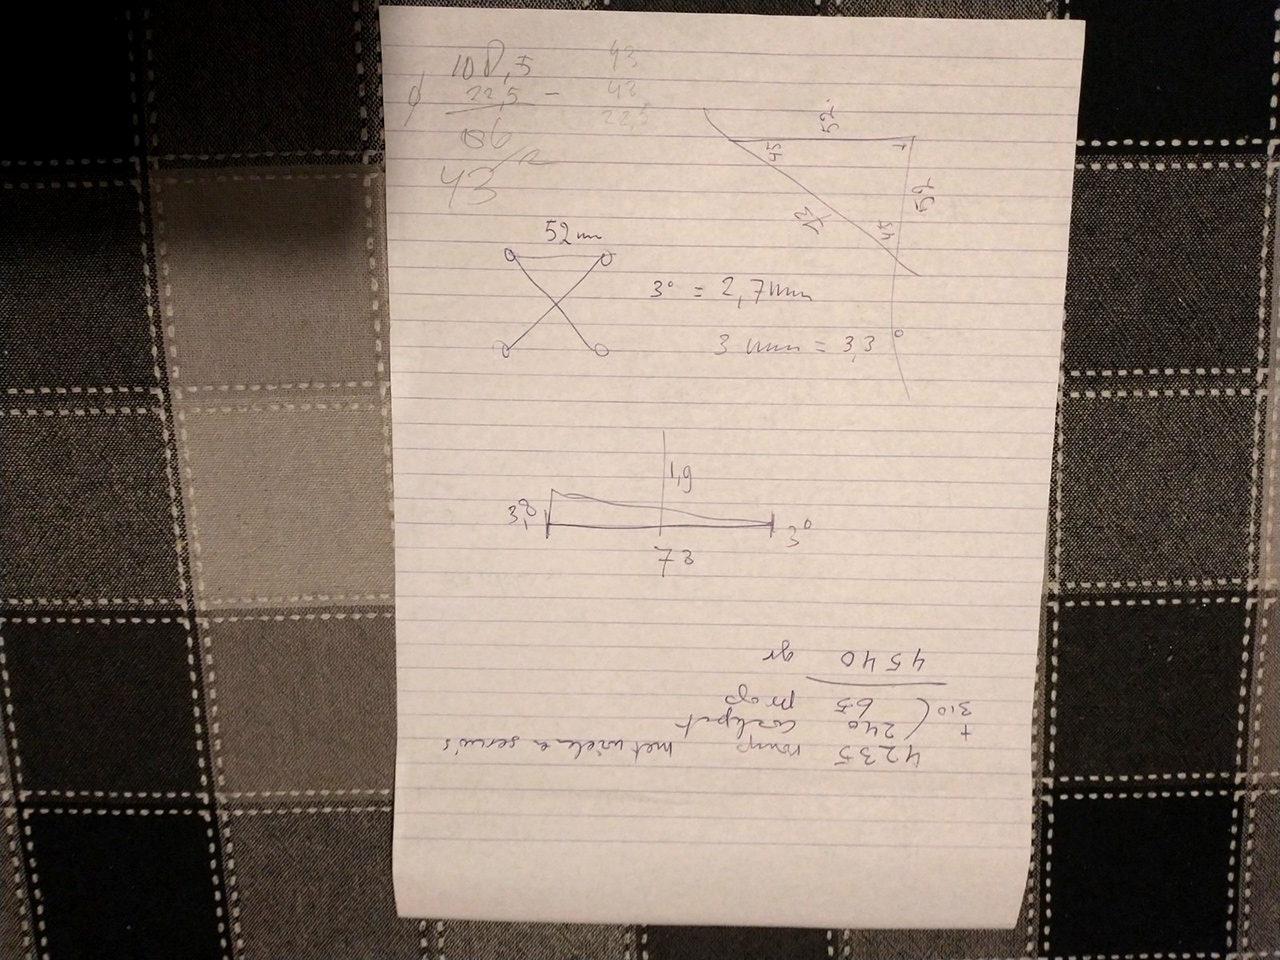 108,5
22,5 -
86
43
43
43
22,5
52
45
52
45
73
52 mm
3° = 2,7 mm
3 mm = 3,3
1,9
3,8
3°
73
4235 romp met wielen servo's
+ 310 ( 240 cockpit
65 prop
4540 gr